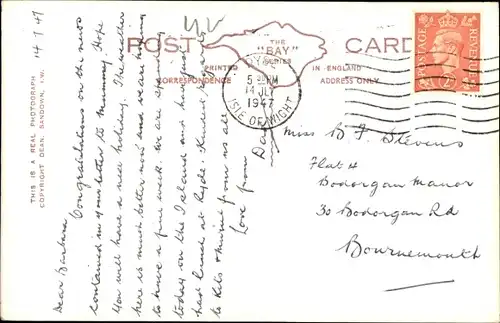 POST CARD
THE
"BAY"
SERIES
PRINTED IN ENGLAND
CORRESPONDENCE ADDRESS ONLY
THIS IS A REAL PHOTOGRAPH
COPYRIGHT DEAN, SANDOWN, I.W.
POSTAGE REVENUE
5 PM
14 JLY
1947
ISLE OF WIGHT
14.7.47
Dear Barbara,
Congratulations on the news
contained in your letter to Mummy. Hope
you will have a nice holiday. The weather
here is much better now and we are hoping
to have a fine week. We are spending
today on the Island and have just
had lunch at Ryde. Kindest regards to
to Kits & Muriel from us all
Love from
Dad
Miss B F Stevens
Flat 4
Bodorgan Manor
30 Bodorgan Rd
Bournemouth